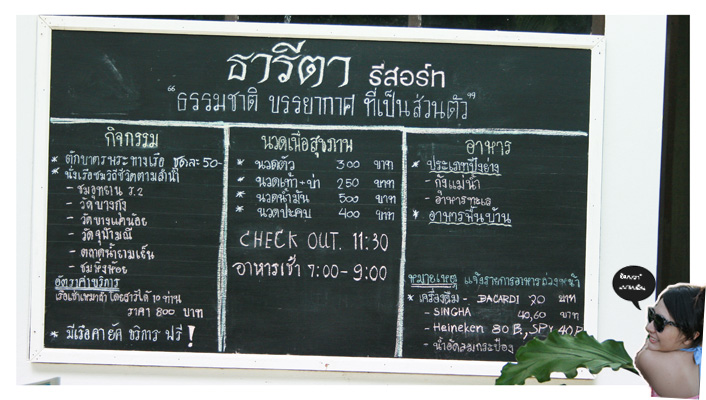 ธารีตา รีสอร์ท
"ธรรมชาติ บรรยากาศ ที่เป็นส่วนตัว"
กิจกรรม
* ตักบาตรพระทางเรือ ชุดละ 50-
* นั่งเรือชมวิถีชีวิตตามลำน้ำ
- ชมอุทยาน ร.2
- วัดบางกุ้ง
- วัดบางแคน้อย
- วัดจุฬามณี
- ตลาดน้ำยามเย็น
- ชมหิ่งห้อย
อัตราค่าบริการ
เรือเช่าเหมาลำ โดยสารได้ 10 ท่าน
ราคา 800 บาท
* มีเรือคายัค บริการ ฟรี !
นวดเพื่อสุขภาพ
* นวดตัว 300 บาท
* นวดเท้า+บ่า 250 บาท
* นวดน้ำมัน 500 บาท
* นวดประคบ 400 บาท
CHECK OUT. 11:30
อาหารเช้า 7:00-9:00
อาหาร
* ประเภทปิ้งย่าง
- กุ้งแม่น้ำ
- อาหารทะเล
* อาหารพื้นบ้าน
หมายเหตุ แจ้งรายการอาหารล่วงหน้า
* เครื่องดื่ม - BACARDI 70 บาท
- SINGHA 40,60 บาท
- Heineken 80 B, SPY 40
- น้ำอัดลมกระป๋อง